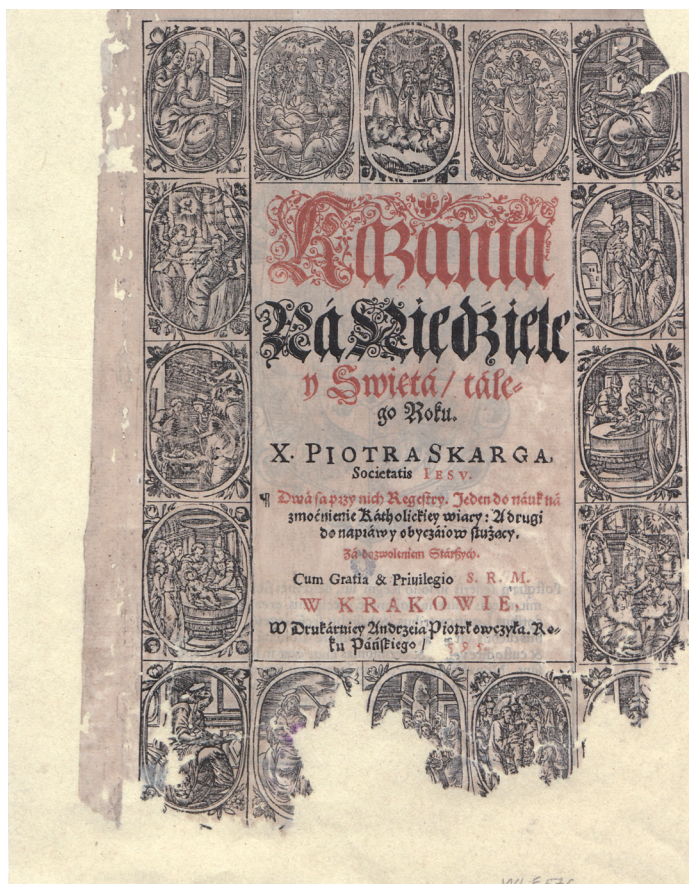 Kazania
Ná Niedźiele
y Swietá / cáłe-
go Roku.
X. PIOTRA SKARGA,
Societatis IESV.
¶ Dwá są przy nich Regestry. Jeden do náuk ná
zmocnienie Káthولickiey wiáry: A drugi
do naprawy obyczáiow służący.
Zá dozwoleniem Stárszych.
Cum Gratia & Priuilegio S. R. M.
W KRAKOWIE,
W Drukárniey Andrzeiá Piotrkowczyká. Ro-
ku Páńskiego / 595.